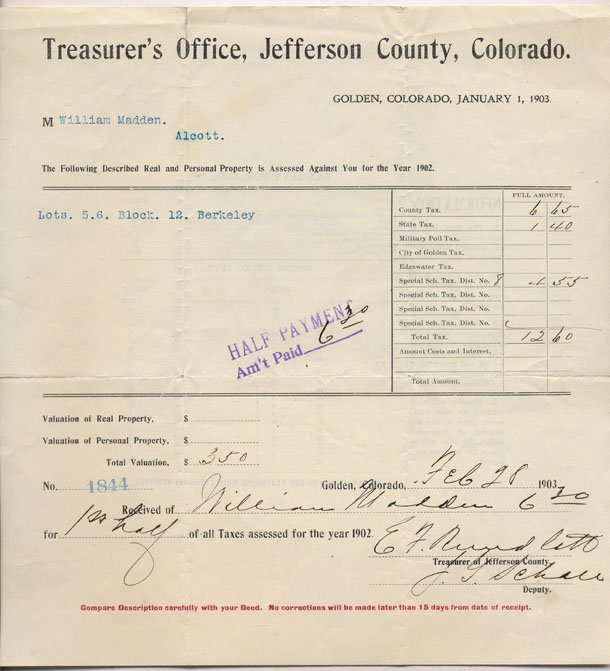 Treasurer's Office, Jefferson County, Colorado.
GOLDEN, COLORADO, JANUARY 1, 1903.
M William Madden.
Alcott.
The Following Described Real and Personal Property is Assessed Against You for the Year 1902.
FULL AMOUNT.
Lots. 5.6. Block. 12. Berkeley
County Tax, 6 65
State Tax, 1 40
Military Poll Tax,
City of Golden Tax,
Edgewater Tax,
Special Sch. Tax, Dist. No. 8 4 55
Special Sch. Tax, Dist. No.
Special Sch. Tax, Dist. No.
Special Sch. Tax, Dist. No.
Total Tax, 12 60
Amount Costs and Interest,
Total Amount,
HALF PAYMENT
Am't Paid 6 30
Valuation of Real Property, $
Valuation of Personal Property, $
Total Valuation, $ 350
No. 1844 Golden, Colorado, Feb 28 1903
Received of William Madden 6 30
for 1st half of all Taxes assessed for the year 1902.
E. F. Rundlett
Treasurer of Jefferson County.
Deputy.
Compare Description carefully with your Deed. No corrections will be made later than 15 days from date of receipt.